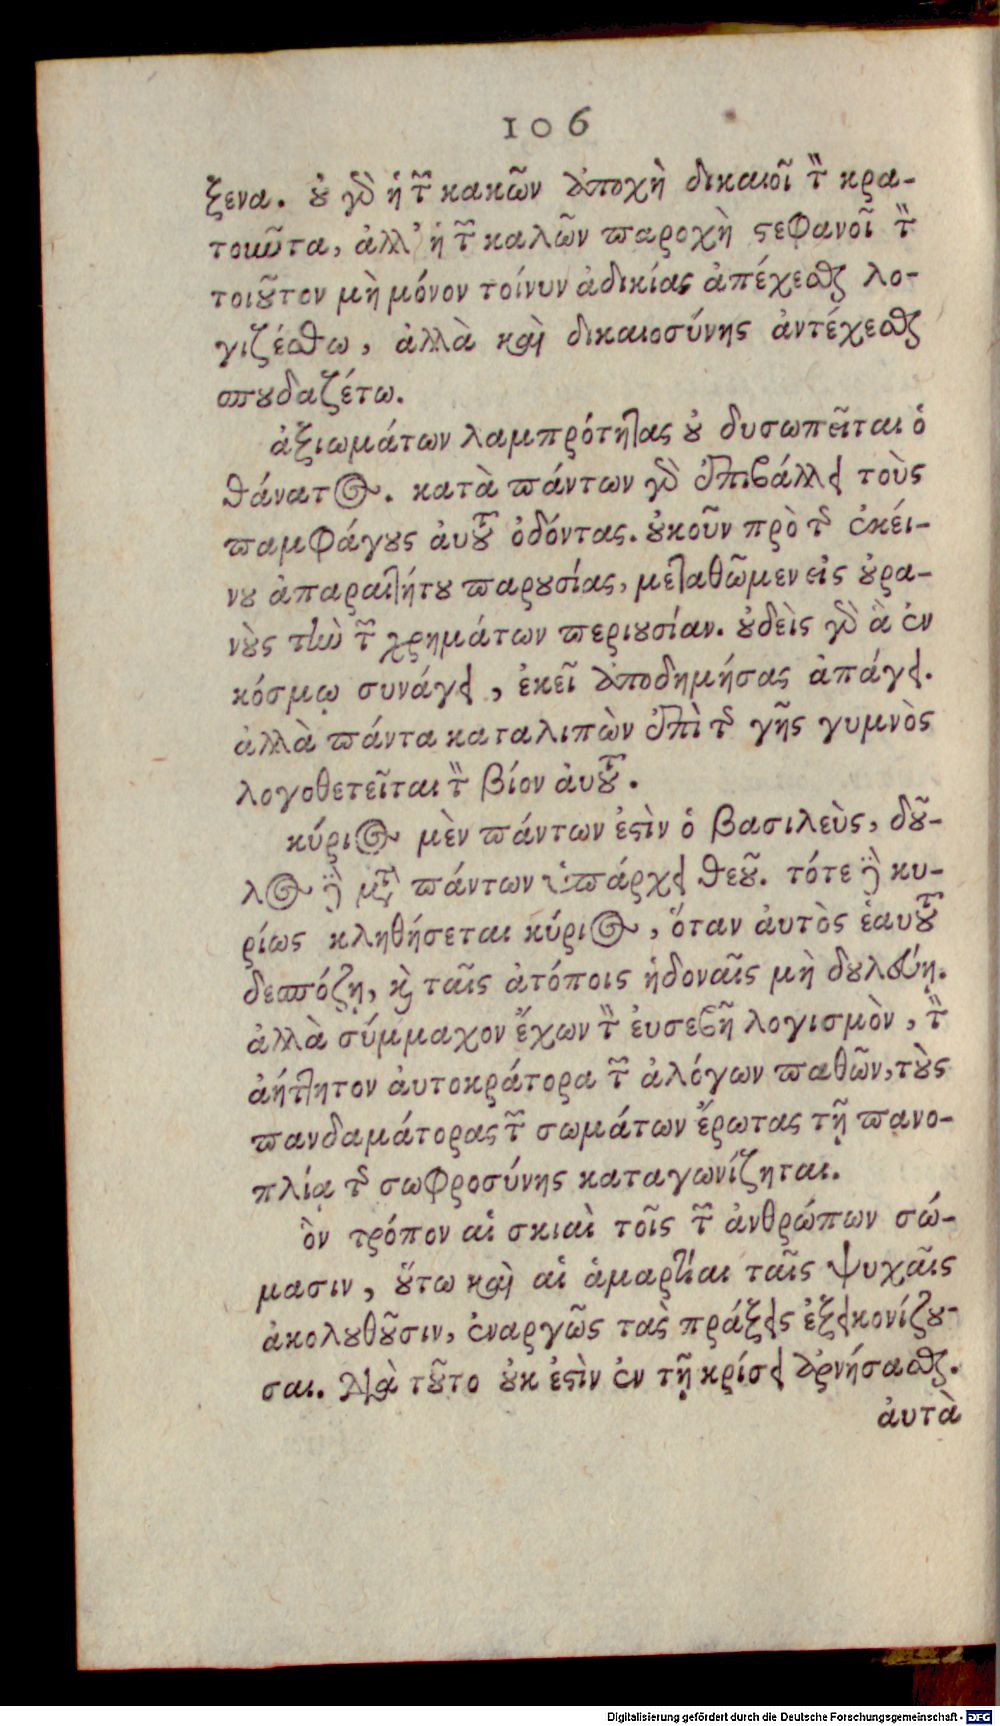 106
ξενα. οὐ γὰρ ἡ τῶν κακῶν ἀποχὴ δικαιοῖ τὸν κρα-
τοῦντα, ἀλλ' ἡ τῶν καλῶν παροχὴ στεφανοῖ τὸν
τοιοῦτον μὴ μόνον τοίνυν ἀδικίας ἀπέχεσθαι λο-
γιζέσθω, ἀλλὰ καὶ δικαιοσύνης ἀντέχεσθαι
σπουδαζέτω.
ἀξιωμάτων λαμπρότητας οὐ δυσωπεῖται ὁ
θάνατος. κατὰ πάντων γὰρ ἐπιβάλλει τοὺς
παμφάγους αὐτοῦ ὀδόντας. οὐκοῦν πρὸ τῆς ἐκεί-
νου ἀπαραιτήτου παρουσίας, μεταθῶμεν εἰς οὐρα-
νοὺς τὴν τῶν χρημάτων περιουσίαν. οὐδεὶς γὰρ ἃ ἐν
κόσμῳ συνάγει, ἐκεῖ ἀποδημήσας ἀπάγει.
ἀλλὰ πάντα καταλιπὼν ἐπὶ τῆς γῆς γυμνὸς
λογοθετεῖται τὸν βίον αὐτοῦ.
κύριος μὲν πάντων ἐστὶν ὁ βασιλεὺς, δοῦ-
λος δὲ μετὰ πάντων ὑπάρχει θεοῦ. τότε δὲ κυ-
ρίως κληθήσεται κύριος, ὅταν αὐτὸς ἑαυτοῦ
δεσπόζῃ, καὶ ταῖς ἀτόποις ἡδοναῖς μὴ δουλεύῃ.
ἀλλὰ σύμμαχον ἔχων τὸν εὐσεβῆ λογισμὸν, τὸν
ἀήττητον αὐτοκράτορα τῶν ἀλόγων παθῶν, τοὺς
πανδαμάτορας τῶν σωμάτων ἔρωτας τῇ πανο-
πλίᾳ τῆς σωφροσύνης καταγωνίζηται.
ὃν τρόπον αἱ σκιαὶ τοῖς τῶν ἀνθρώπων σώ-
μασιν, οὕτω καὶ αἱ ἁμαρτίαι ταῖς ψυχαῖς
ἀκολουθοῦσιν, ἐναργῶς τὰς πράξεις ἐξεικονίζου-
σαι. διὰ τοῦτο οὐκ ἐστὶν ἐν τῇ κρίσει ἀρνήσασθαι.
αὐτὰ
Digitalisierung gefördert durch die Deutsche Forschungsgemeinschaft - DFG